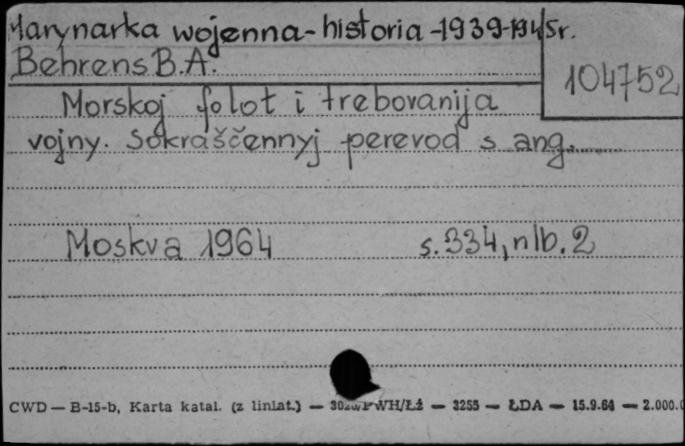 Marynarka wojenna - historia - 1939-1945r.
Behrens B.A.
104752
Morskoj folot i trebovanija
vojny. Sokraščennyj perevod s ang.
Moskva 1964 s. 334, nlb. 2
CWD — B-15-b, Karta katal. (z liniat.) — /Łź — 3255 — ŁDA — 15.9.64 — 2.000.0